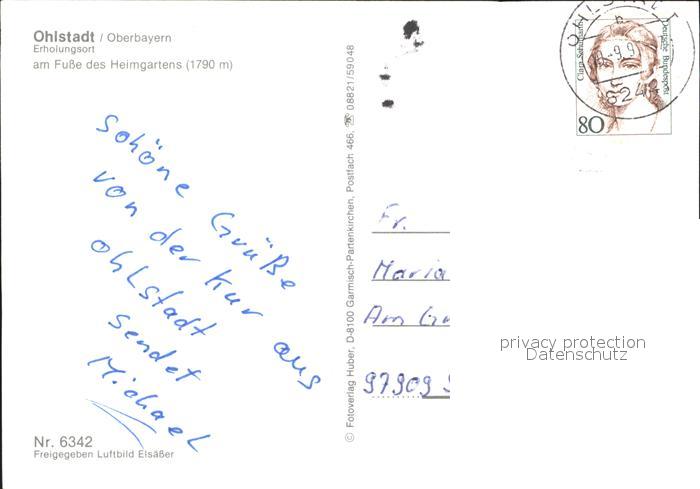 Ohlstadt / Oberbayern
Erholungsort
am Fuße des Heimgartens (1790 m)
schöne Grüße
von der Kur aus
Ohlstadt
sendet
Michael
Nr. 6342
Freigegeben Luftbild Elsäßer
© Fotoverlag Huber, D-8100 Garmisch-Partenkirchen, Postfach 466, ☎ 08821/59048
Clara Schumann
Deutsche Bundespost
80
Fr.
Maria
Am
97909
privacy protection
Datenschutz